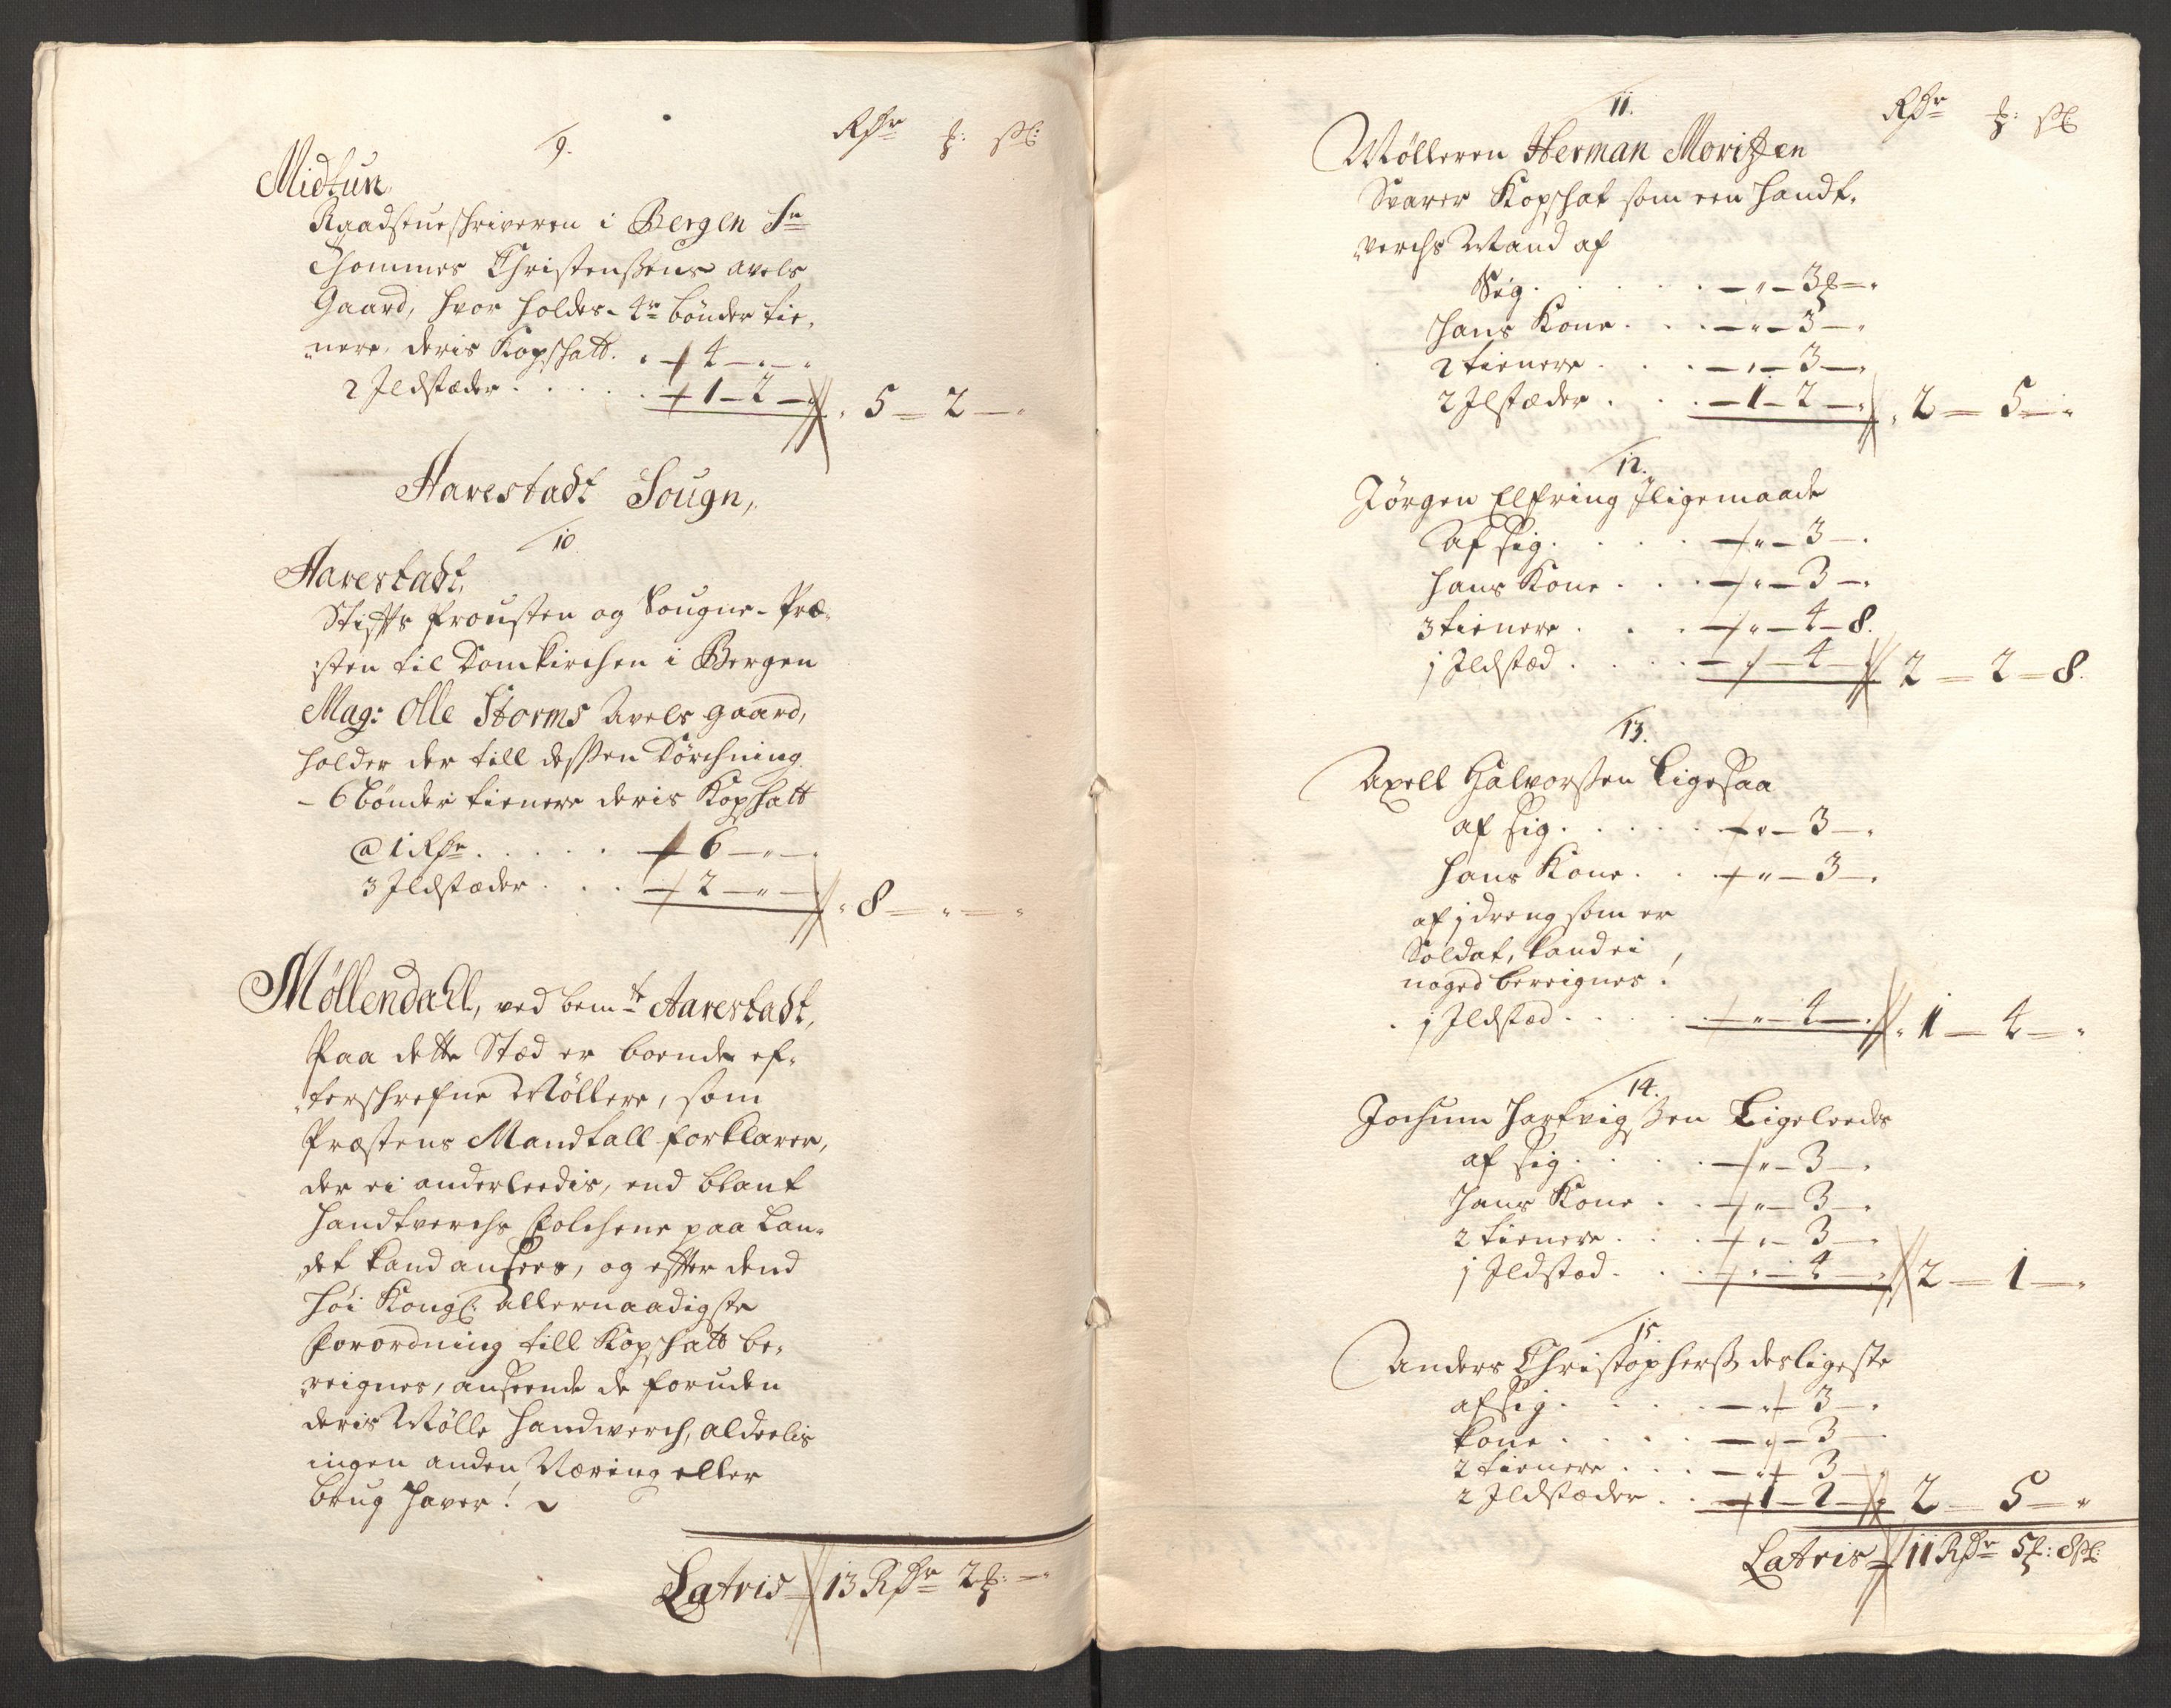 9.
Rdr ₰: sk:
Midtun
Raadstueschriveren i Bergen Sr
Thommes Christenssens avels
Gaard, hvor holdes 4re bönder tie,
nere, deris Kopschatt. . 4 — " — "
2 Jldstæder . . . . 1 — 2 — " 5 — 2 — "
Aarestadt Sougn,
10.
Aarestadt,
Stiffts Prousten og Sougne-Præ,
sten til Domkirchen i Bergen
Mag: Olle Storms Avels gaard,
holder der till dessen Dörchning
6 bönder tienere deris Kopschatt
@ 1 Rdr . . . . . 6 — " —
3 Jldstæder . . . 2 — " — " 8 — " — "
Möllendahl, ved bemte Aarestadt,
Paa dette Stæd er boende ef,
terschrefne Möllere, som
Præstens Mandtall forklarer,
der ei anderleedis, end blant
Handtverchs Folchene paa Lan,
det kand ansees, og efter dend
höi Kongl: allernaadigste
forordning till Kopschatt be,
reignes, anseende de foruden
deris Mölle Handwerch, aldeelis
ingen anden Næring eller
brug haver!
Latris 13 Rdr 2 ₰: — "
11.
Rdr ₰: sk
Mölleren Herman Moritzen
Svarer Kopschat som een handt,
verchs Mand af
Sig . . . . . — " — 3 ₰ — "
Hans Kone . . . — " — 3 — "
2 tienere . . . — " — 3 — "
2 Jlstæder . . . — 1 — 2 — " 2 — 5 — "
12.
Jörgen Elfring Jligemaade
Af sig . . . . — " — 3 — .
hans Kone . . . — " — 3 — .
3 tienere . . . — " — 4 — 8.
1 Jldstæd . . . . — " — 4 — 2 — 2 — 8.
13.
Axell Halvorssen Ligesaa
af sig . . . . . — " — 3 — .
hans Kone . . — " — 3 — .
af 1 dreng som er
Soldat, kand ei
noged bereignes!
1 Jldstæd . . . . — " — 4 — . 1 — 4 — "
14.
Jochum Hartvigssen Ligeleedes
af sig . . . . — " — 3 — .
Hans Kone . . — " — 3 — .
2 tienere . . . — " — 3 — .
1 Jldstæd . . . — " — 4 — " 2 — 1 — "
15.
Anders Christopherss desligeste
af sig . . . . — " — 3 — .
kone . . . . — " — 3 — .
2 tienere . . . — " — 3 —
2 Jldstæder . . — 1 — 2 — " 2 — 5 — "
Latris 11 Rdr 5 ₰: 8 sk: